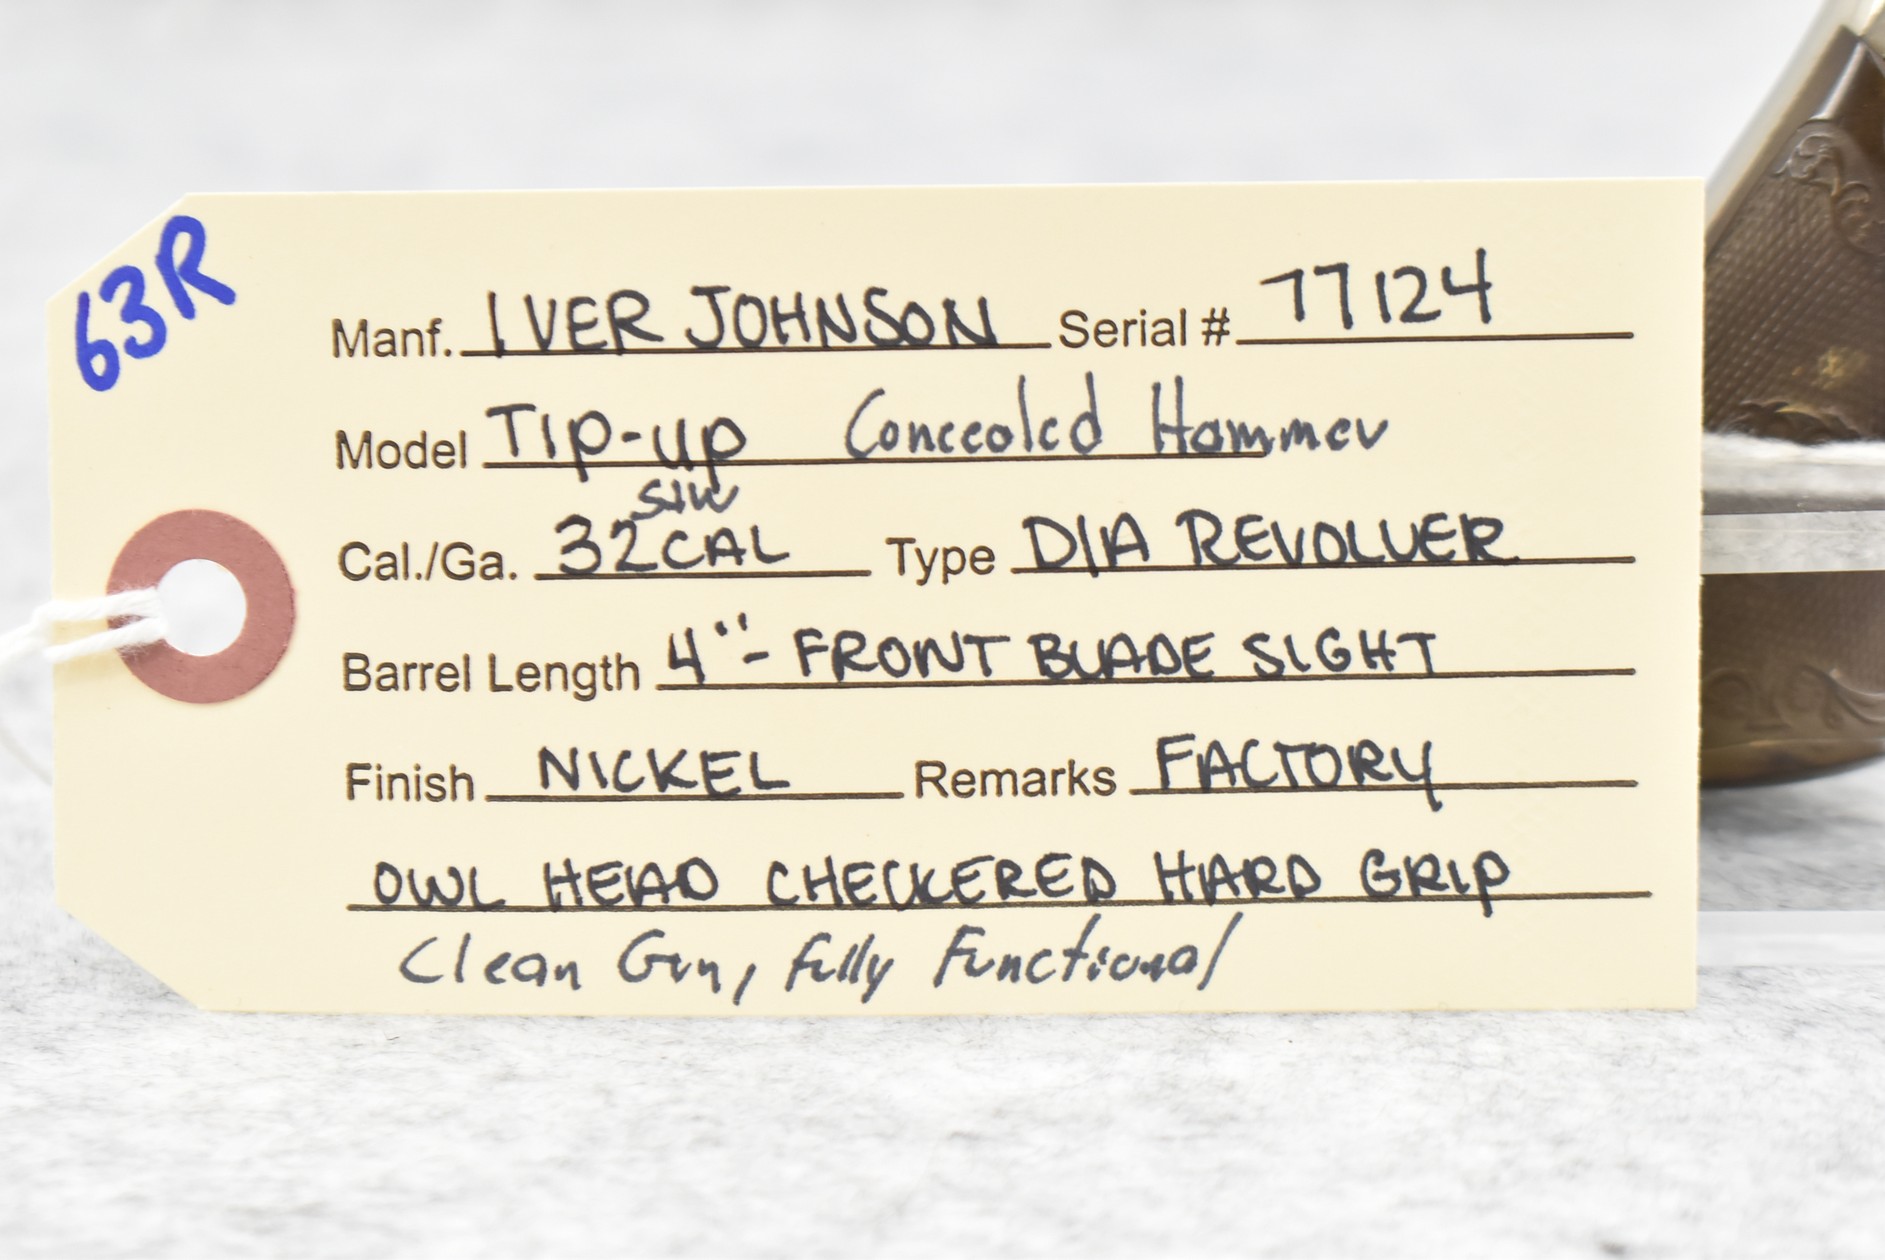 63R
Manf. IVER JOHNSON Serial # 77124
Model TIP-UP Concealed Hammer
S&W
Cal./Ga. 32 CAL Type D/A REVOLVER
Barrel Length 4"- FRONT BLADE SIGHT
Finish NICKEL Remarks FACTORY
OWL HEAD CHECKERED HARD GRIP
Clean Gun, fully Functional